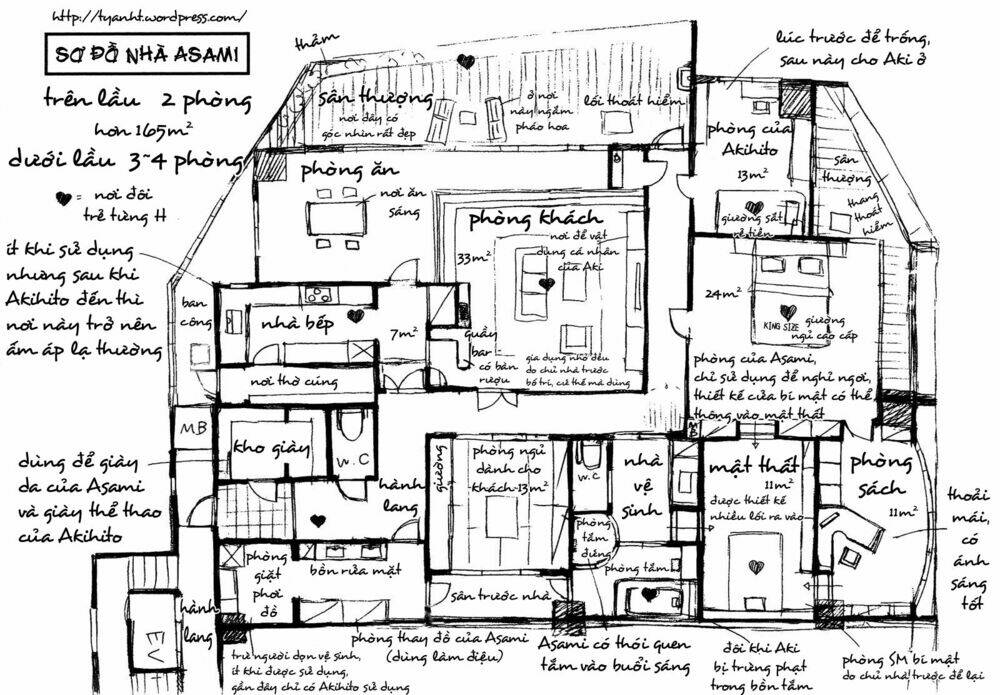 http://tyanht.wordpress.com/
SƠ ĐỒ NHÀ ASAMI
trên lầu 2 phòng
hơn 165m²
dưới lầu 3~4 phòng
♥ = nơi đôi
trẻ từng H
ít khi sử dụng
nhưng sau khi
Akihito đến thì
nơi này trở nên
ấm áp lạ thường
dùng để giày
da của Asami
và giày thể thao
của Akihito
thảm
sân thượng
nơi đây có
góc nhìn rất đẹp
ở nơi
này ngắm
pháo hoa
lối thoát hiểm
lúc trước để trống,
sau này cho Aki ở
phòng của
Akihito
13m²
giường sắt
rẻ tiền
sân
thượng
thang
thoát
hiểm
phòng ăn
nơi ăn
sáng
phòng khách
nơi để vật
dụng cá nhân
của Aki
33m²
gia dụng nhờ đều
do chủ nhà trước
bố trí, cứ thế mà dùng
ban
công
nhà bếp
7m²
quầy
bar
có bàn
rượu
nơi thờ cúng
24m²
KING SIZE
giường
ngủ cao cấp
phòng của Asami,
chỉ sử dụng để nghỉ ngơi,
thiết kế cửa bí mật có thể
thông vào mật thất
MB
kho giày
W.C
hành
lang
giường
phòng ngủ
dành cho
khách 13m²
W.C
nhà
vệ
sinh
phòng
tắm
đứng
phòng tắm
mật thất
11m²
được thiết kế
nhiều lối ra vào
phòng
sách
11m²
thoải
mái,
có
ánh
sáng
tốt
phòng
giặt
phơi
đồ
bồn rửa mặt
sân trước nhà
hành
lang
EV
phòng thay đồ của Asami
(dùng làm điệu)
trừ người dọn vệ sinh,
ít khi được sử dụng,
gần đây chỉ có Akihito sử dụng
Asami có thói quen
tắm vào buổi sáng
đôi khi Aki
bị trừng phạt
trong bồn tắm
phòng SM bí mật
do chủ nhà trước để lại